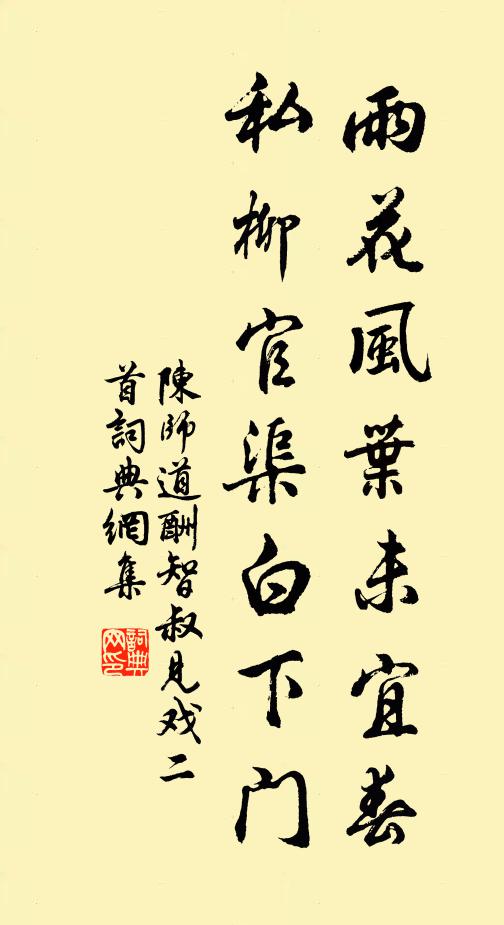 雨花風葉未宜春
私柳官渠白下門
陳師道酬智叔見戏二
首詞典網集
詞典网印